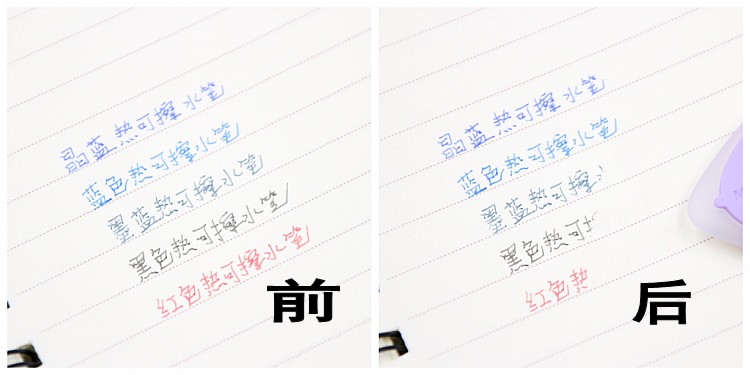 晶蓝热可擦水笔
蓝色热可擦水笔
墨蓝热可擦水笔
黑色热可擦水笔
红色热可擦水笔
前
晶蓝热可擦水笔
蓝色热可擦水笔
墨蓝热可擦
黑色热可
红色热
后